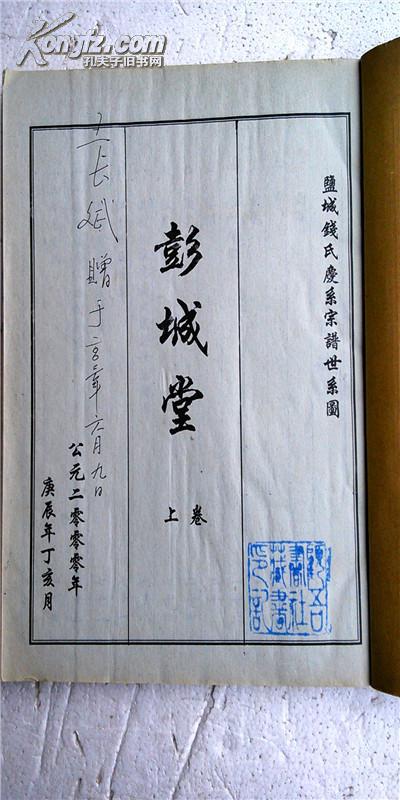 Kongfz.com
孔夫子旧书网
鹽城錢氏慶系宗譜世系圖
彭城堂
上卷
公元二零零零年
庚辰年丁亥月
贈于
六月九日
藏書